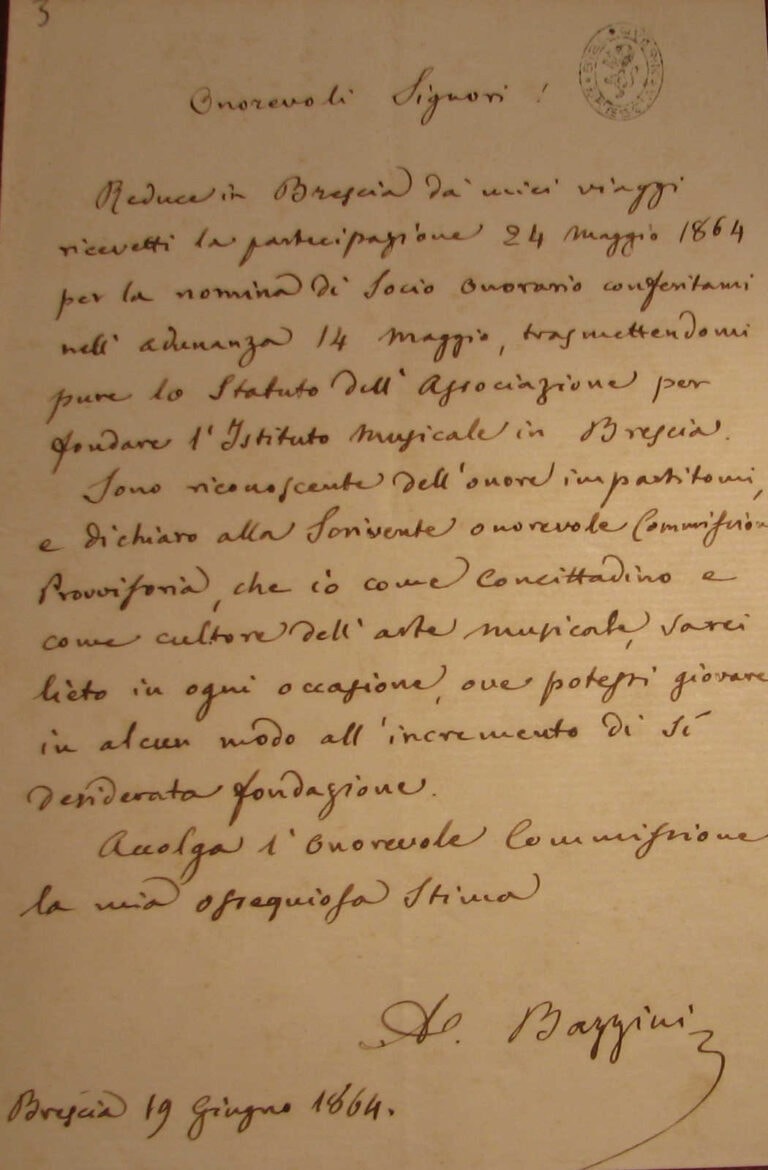 3
Onorevoli Signori!
Reduce in Brescia da' miei viaggi
ricevetti la partecipazione 24 Maggio 1864
per la nomina di Socio Onorario conferitami
nell' adunanza 14 Maggio, trasmettendomi
pure lo Statuto dell' Associazione per
fondare l'Istituto Musicale in Brescia.
Sono riconoscente dell'onore impartitomi,
e dichiaro alla Scrivente onorevole Commission
Provvisoria, che io come Concittadino e
come cultore dell' arte musicale, sarei
lieto in ogni occasione, ove potessi giovare
in alcun modo all'incremento di sì
desiderata fondazione.
Accolga l'Onorevole Commissione
la mia ossequiosa Stima
A. Bazzini
Brescia 19 Giugno 1864.